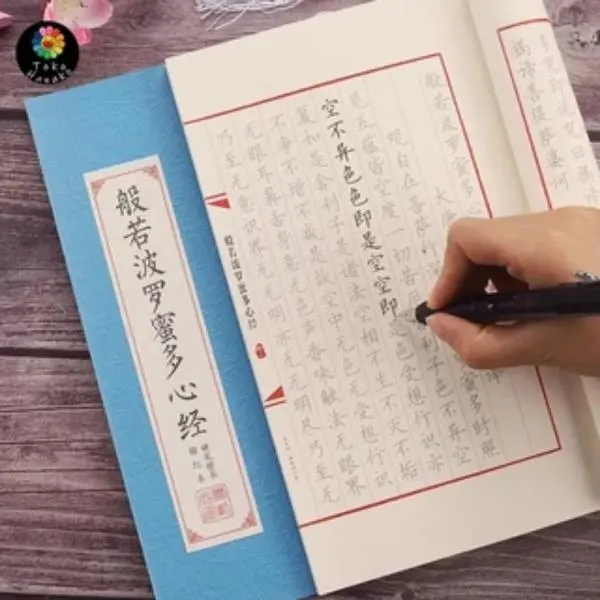 Toko
般若波罗蜜多心经
硬笔楷书
描红本
多咒即说咒曰揭谛
揭谛菩提萨婆诃
般若波罗蜜多心
大唐
译
观自在菩萨行深
蜜多时照
见五蕴皆空度一切苦厄舍利子色不异空
空不异色色即是空空即是色受想行识亦
复如是舍利子是诸法空相不生不灭不垢
不净不增不减是故空中无色无受想行识
无眼耳鼻舌身意无色声香味触法无眼界
乃至无意识界无无明亦无无明尽乃至无
般若波罗蜜多心经